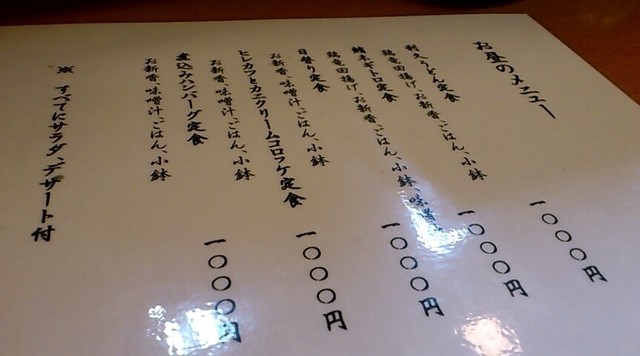 お昼のメニュー
利久うどん定食
鶏竜田揚げ、お新香、ごはん、小鉢
一〇〇〇円
鮪ネギトロ定食
鶏竜田揚げ、お新香、ごはん、小鉢、味噌
一〇〇〇円
日替り定食
お新香、味噌汁、ごはん、小鉢
一〇〇〇円
ヒレカツとカニクリームコロッケ定食
お新香、味噌汁、ごはん、小鉢
一〇〇〇円
煮込みハンバーグ定食
お新香、味噌汁、ごはん、小鉢
一〇〇〇円
※ すべてにサラダ、デザート付